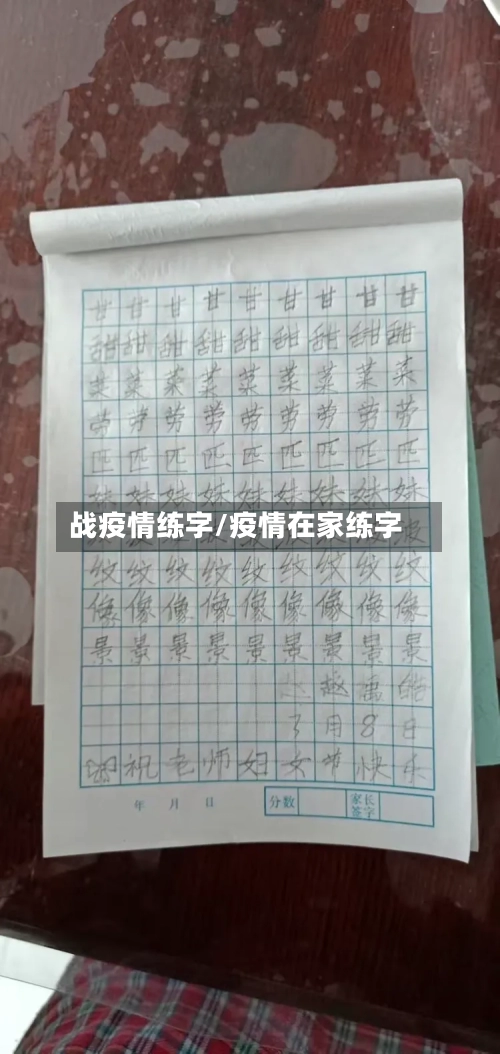 甘甘甘甘甘甘甘甘甘
甜甜甜甜甜甜甜甜甜
菜菜菜菜菜菜菜菜菜
劳劳劳劳劳劳劳劳劳
匹匹匹匹匹匹匹匹匹
妹妹妹妹妹妹妹妹妹
战疫情练字/疫情在家练字
纹纹纹纹纹纹纹纹纹
像像像像像像像像像
景景景景景景景景景
3月8日
祝老师妇女节快乐
年 月 日 分数 家长签字